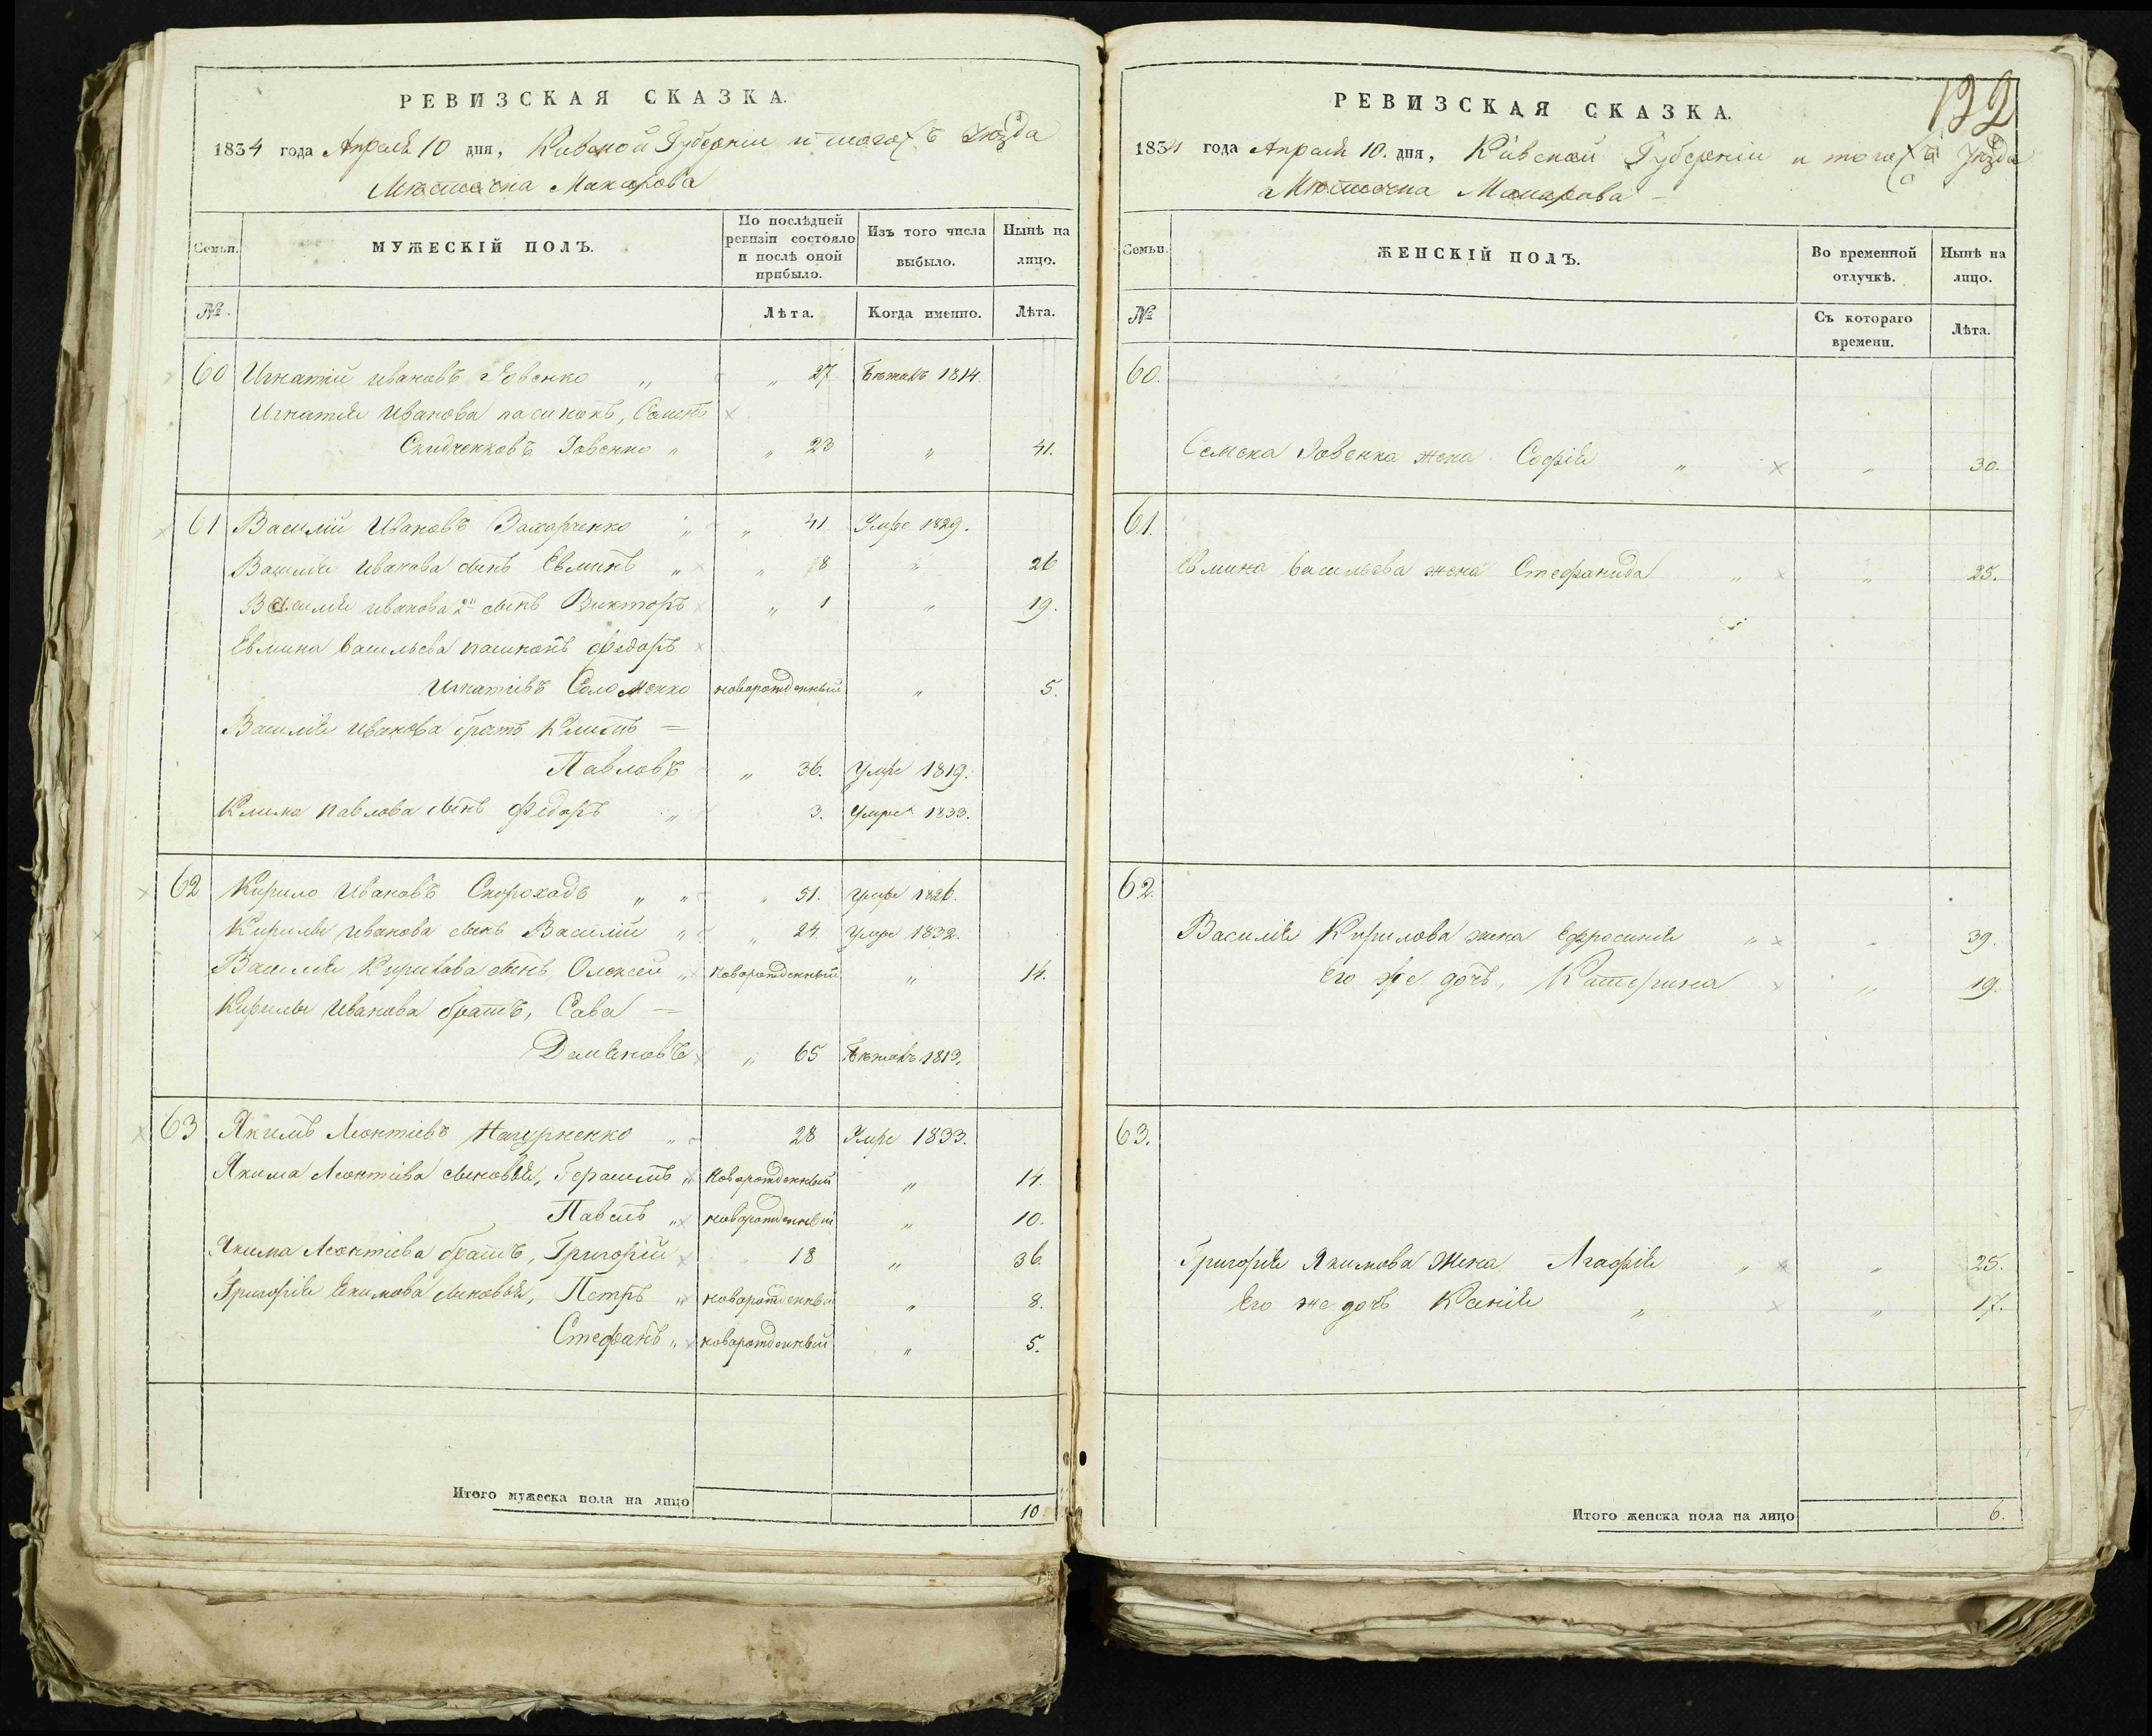 РЕВИЗСКАЯ СКАЗКА.
1834 года Апреля 10 дня, Киевской Губерніи и того жъ Уѣзда
Мѣстечка Макарова
Семьи.
МУЖЕСКІЙ ПОЛЪ.
По послѣдней ревизіи состояло и послѣ оной прибыло.
Изъ того числа выбыло.
Нынѣ на лицо.
№.
Лѣта.
Когда именно.
Лѣта.
60 Игнатій Ивановъ Ювенко „ „ 27 Бѣжалъ 1814.
Игнатія Иванова пасинокъ, Семенъ
Ювенко „ „ 23 „ 41.
61 Василій Ивановъ Захарченко „ „ 41 Умре 1829.
Василія Иванова сынъ Евминъ „ „ 8 „ 26
Василія Иванова 2й сынъ Викторъ „ 1 „ 19.
Евмина Васильева пасинокъ Федоръ
Игнатіевъ Соломенко новорожденный „ 5.
Василія Иванова братъ Климъ =
Павловъ „ 36. Умре 1819.
Клима Павлова сынъ Федоръ „ 3. Умре 1833.
62 Кирило Ивановъ Скороходъ „ „ „ 51. Умре 1826.
Кирилы Иванова сынъ Василій „ „ 24 Умре 1832.
Василія Кирилова сынъ, Олексей „ новорожденный „ 14.
Кирилы Иванова братъ, Сава —
Демьяновъ „ 65 Бѣжалъ 1813.
63 Якимъ Леонтіевъ Нагурненко „ 28 Умре 1833.
Якима Леонтіева сыновья, Герасимъ „ Новорожденный „ 14.
Павелъ „ новорожденный „ 10.
Якима Леонтіева братъ, Григорій 18 „ 36.
Григорія Екимова сыновья, Петръ „ новорожденный „ 8.
Стефанъ „ новорожденный „ 5.
Итого мужеска пола на лицо 10
132
РЕВИЗСКАЯ СКАЗКА.
1834 года Апреля 10. дня, Кіевской Губерніи и того жъ Уѣзда
Мѣстечка Макарова —
Семьи.
ЖЕНСКІЙ ПОЛЪ.
Во временной отлучкѣ.
Нынѣ на лицо.
№
Съ котораго времени.
Лѣта.
60.
Семена Ювенка жена Софія „ „ 30.
61.
Евмина Васильева жена Стефанида „ „ 25.
62.
Василія Кирилова жена Ефросинія „ „ 39.
Его же дочь, Катерина „ 19.
63.
Григорія Якимова жена Агафія „ „ 25.
Его же дочь Ксенія „ „ 17.
Итого женска пола на лицо 6.